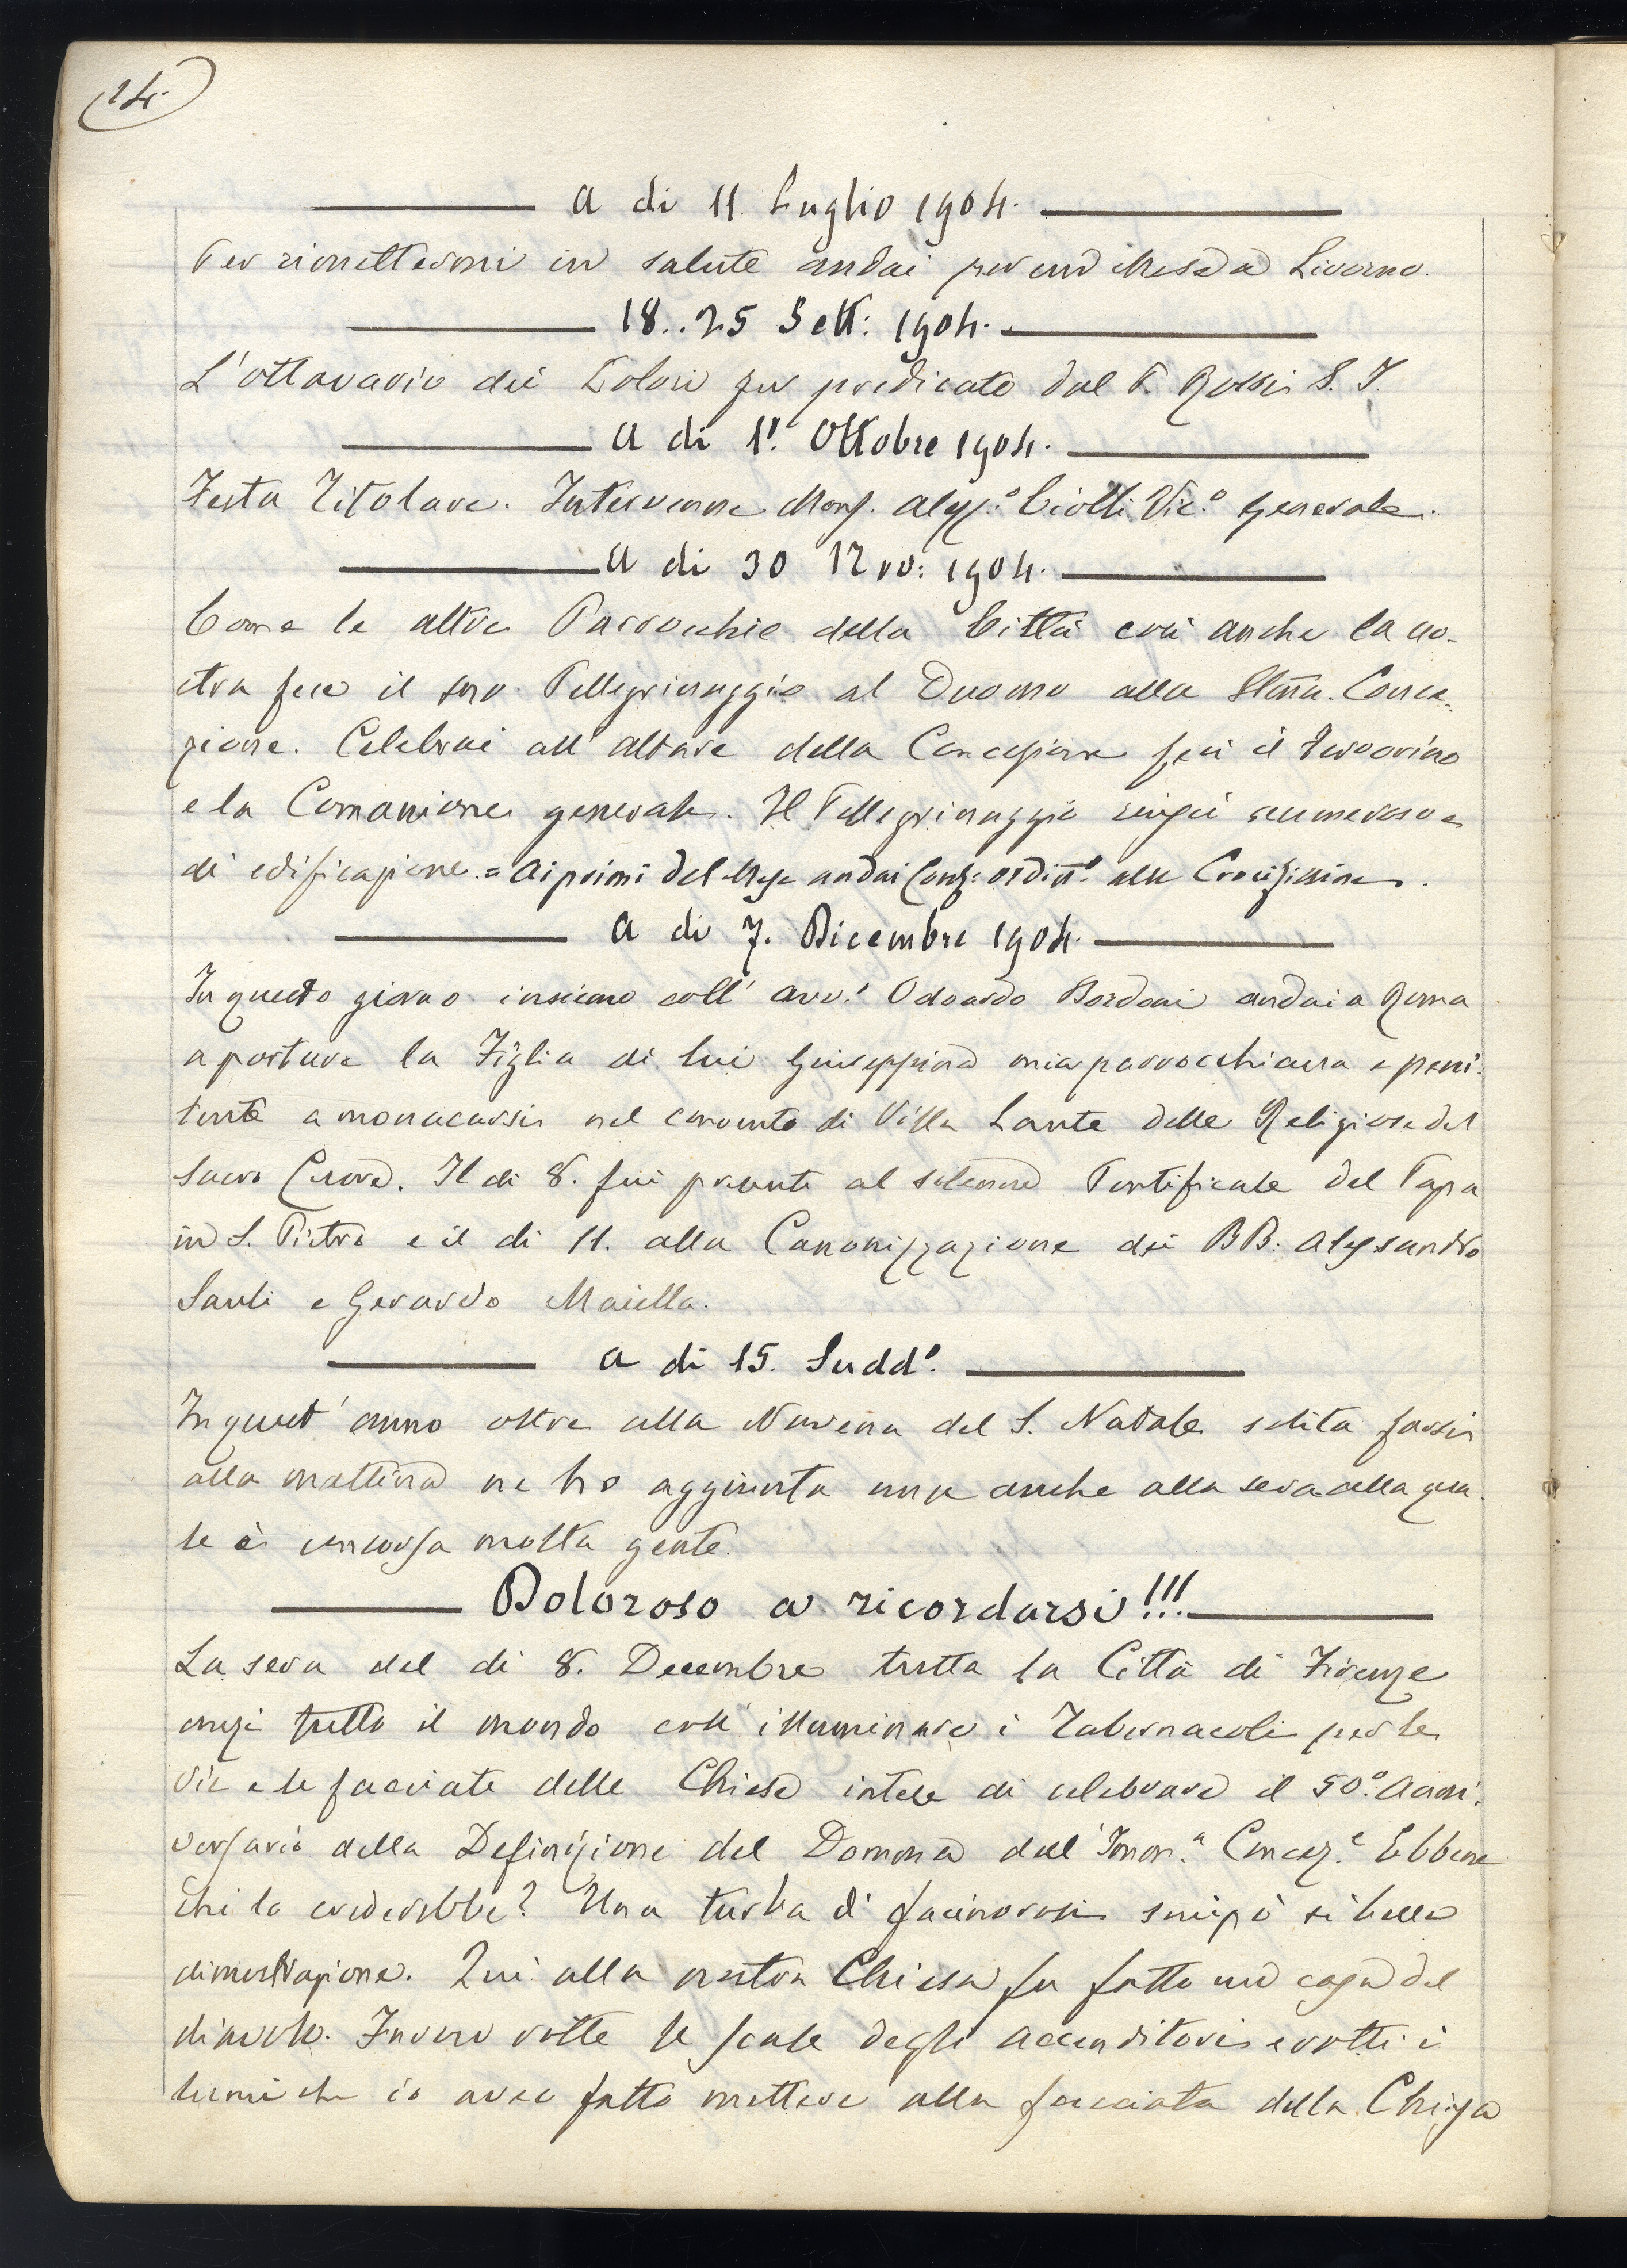 24.
A di 11 Luglio 1904.
Per rimettermi in salute andai per un Mese a Livorno.
18..25 Sett: 1904.
L'ottavario dei Dolori fu predicato dal P. Rossi S. J.
A di 1º. Ottobre 1904.
Festa Titolare. Intervenne Mons. Aless:º Ciolli Vic:º Generale.
A di 30 Nov: 1904.
Come le altre Parrocchie della Città così anche la no-
stra fece il suo Pellegrinaggio al Duomo alla SSma. Conce-
zione. Celebrai all'altare della Concezione feci il fervorino
e la Comunione generale. Il Pellegrinaggio riuscì numeroso e
di edificazione. = Ai primi del Mese andai Conf: ordinº. alle Crocifissine.
A di 7. Dicembre 1904.
In questo giorno insieme coll' avv: Odoardo Bordoni andai a Roma
a portare la Figlia di lui Giuseppina mia parrocchiana e peni-
tente a monacarsi nel convento di Villa Lante delle Religiose del
Sacro Cuore. Il di 8. fui presente al solenne Pontificale del Papa
in S. Pietro e il di 11. alla Canonizzazione dei BB: Alessandro
Sauli e Gerardo Maiella.
A di 15. Suddº.
In quest'anno oltre alla Novena del S. Natale solita farsi
alla mattina ne ho aggiunta una anche alla sera alla qua-
le è concorsa molta gente.
Doloroso a ricordarsi!!!
La sera del di 8. Decembre tutta la Città di Firenze
anzi tutto il mondo coll'illuminare i Tabernacoli per le
vie e le facciate delle Chiese intese di celebrare il 50º. Anni-
versario della Definizione del Domma dell'Imm.ª Concez.e Ebbene
chi lo crederebbe? Una turba di facinorosi sciupò sì bella
dimostrazione. Qui alla nostra Chiesa fu fatto un casa del
diavolo. Furono rotte le scale degli accenditori e rotti i
lumi che io avea fatto mettere alla facciata della Chiesa